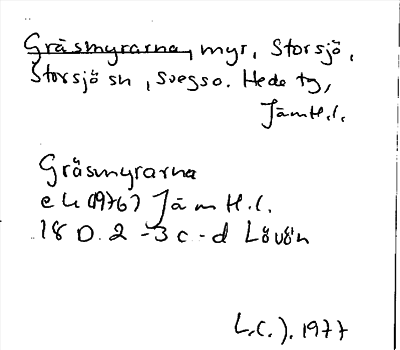 Gräsmyrarna, myr, Storsjö,
Storsjö sn, Svegs so. Hede tg,
Jämtl.l.
Gräsmyrarna
ek (1976) Jämtl.l.
18 D. 2 - 3 c - d Lövön
L.C.J. 1977